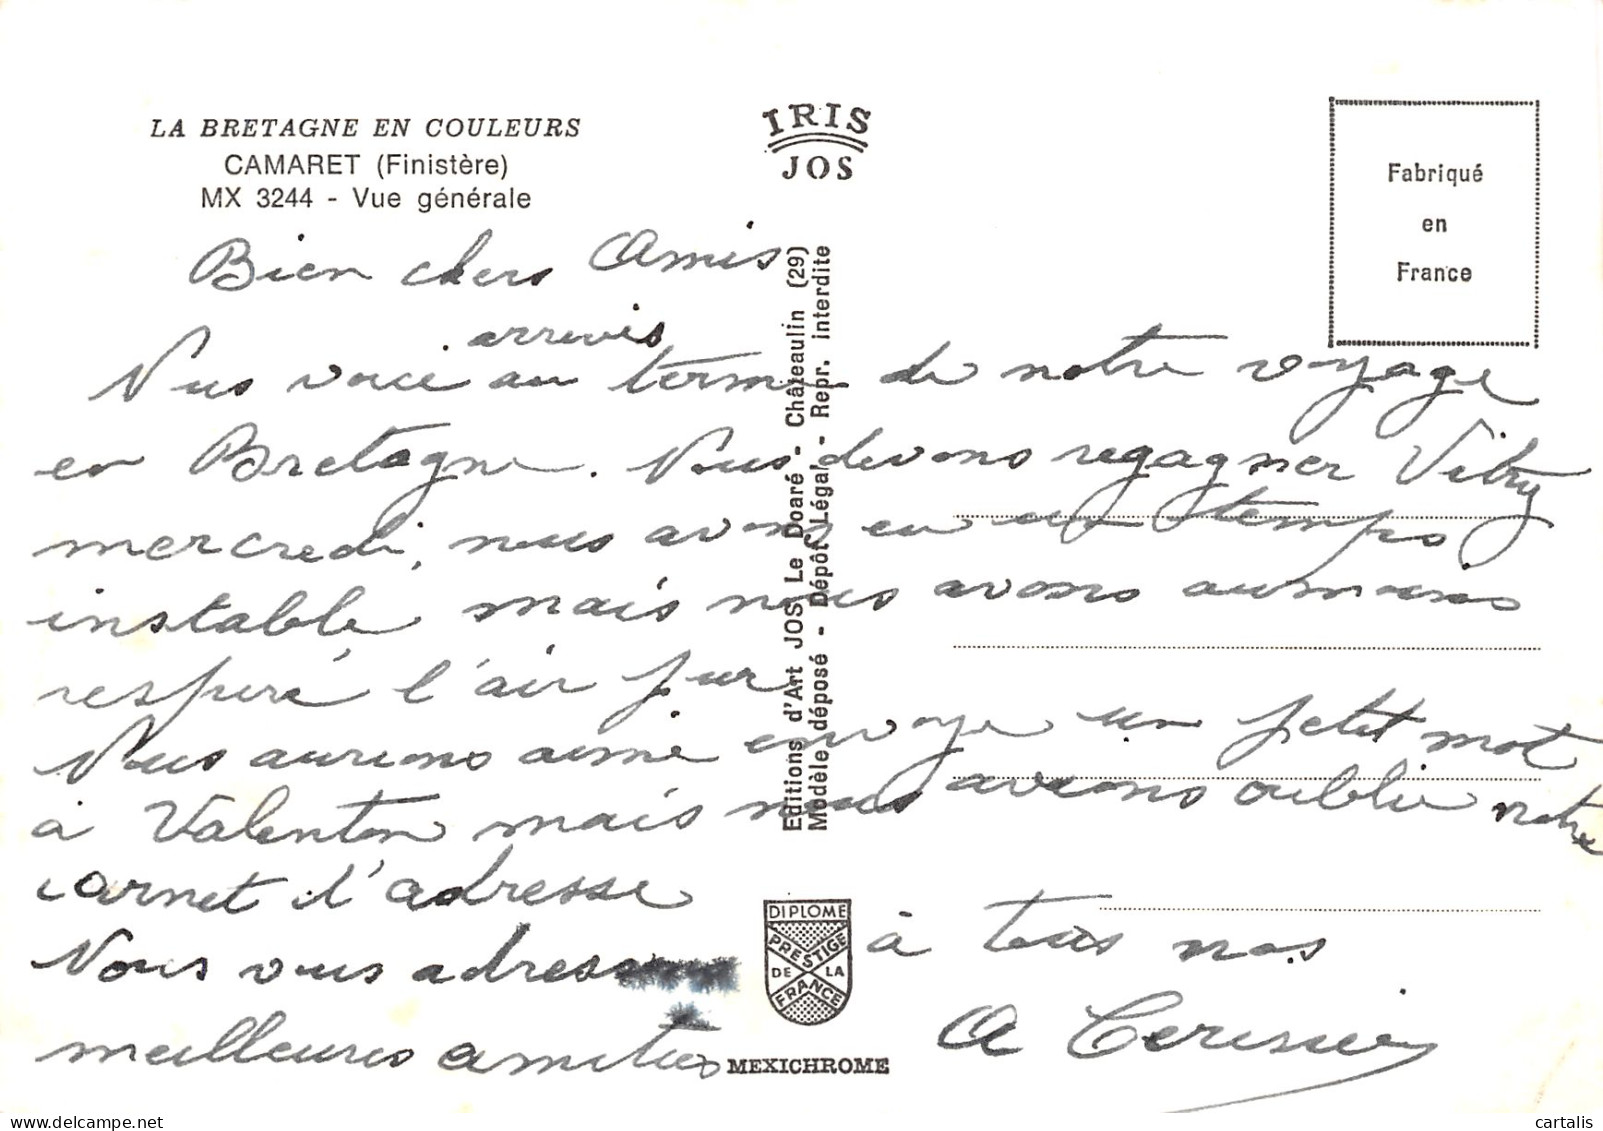 LA BRETAGNE EN COULEURS
CAMARET (Finistère)
MX 3244 - Vue générale
IRIS
JOS
Fabriqué
en
France
Editions d'Art JOS Le Doaré - Châteaulin (29)
Modèle déposé - Dépôt Légal - Repr. interdite
Bien chers Amis
arrivés
Nus voici au terme de notre voyage
en Bretagne. Nous devons regagner Vitry
mercredi, nous avons eu un temps
instable mais nous avons au moins
respiré l'air pur
Nous aurions aimé envoyé un petit mot
à Valenton mais nous avions oublié notre
carnet d'adresse
Nous vous adressons à tous nos
meilleures amitiés
A Cerisier
DIPLOME
PRESTIGE
DE LA
FRANCE
MEXICHROME
delcampe.net
cartalis